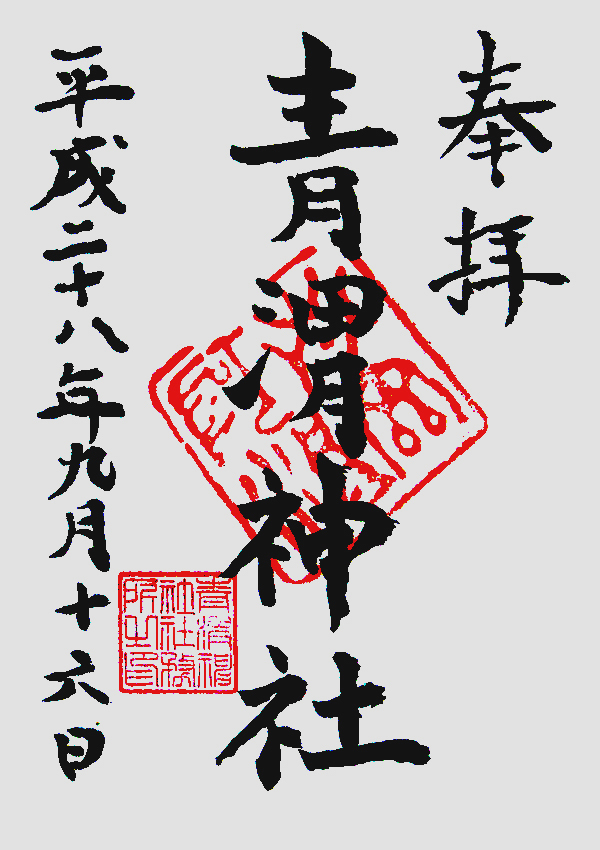 奉拝
青渭神社
平成二十八年九月十六日
青渭神
社社務
所之印